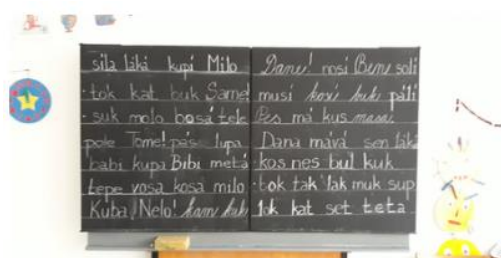 sila láká kupí Milo
tok kat buk Same!
suk molo bosá tele
pole Tome! páse lupa
babi kupa Bibi metá
tepe vosa kosa milo
Kuba! Nelo! kam buk
Dane! nosí Beny solí
musí kosí buk pálí
Pes má kus masa.
Dana mává sen láká
kos nes bul kuk
tok tak lak muk sup
tok kat set teta